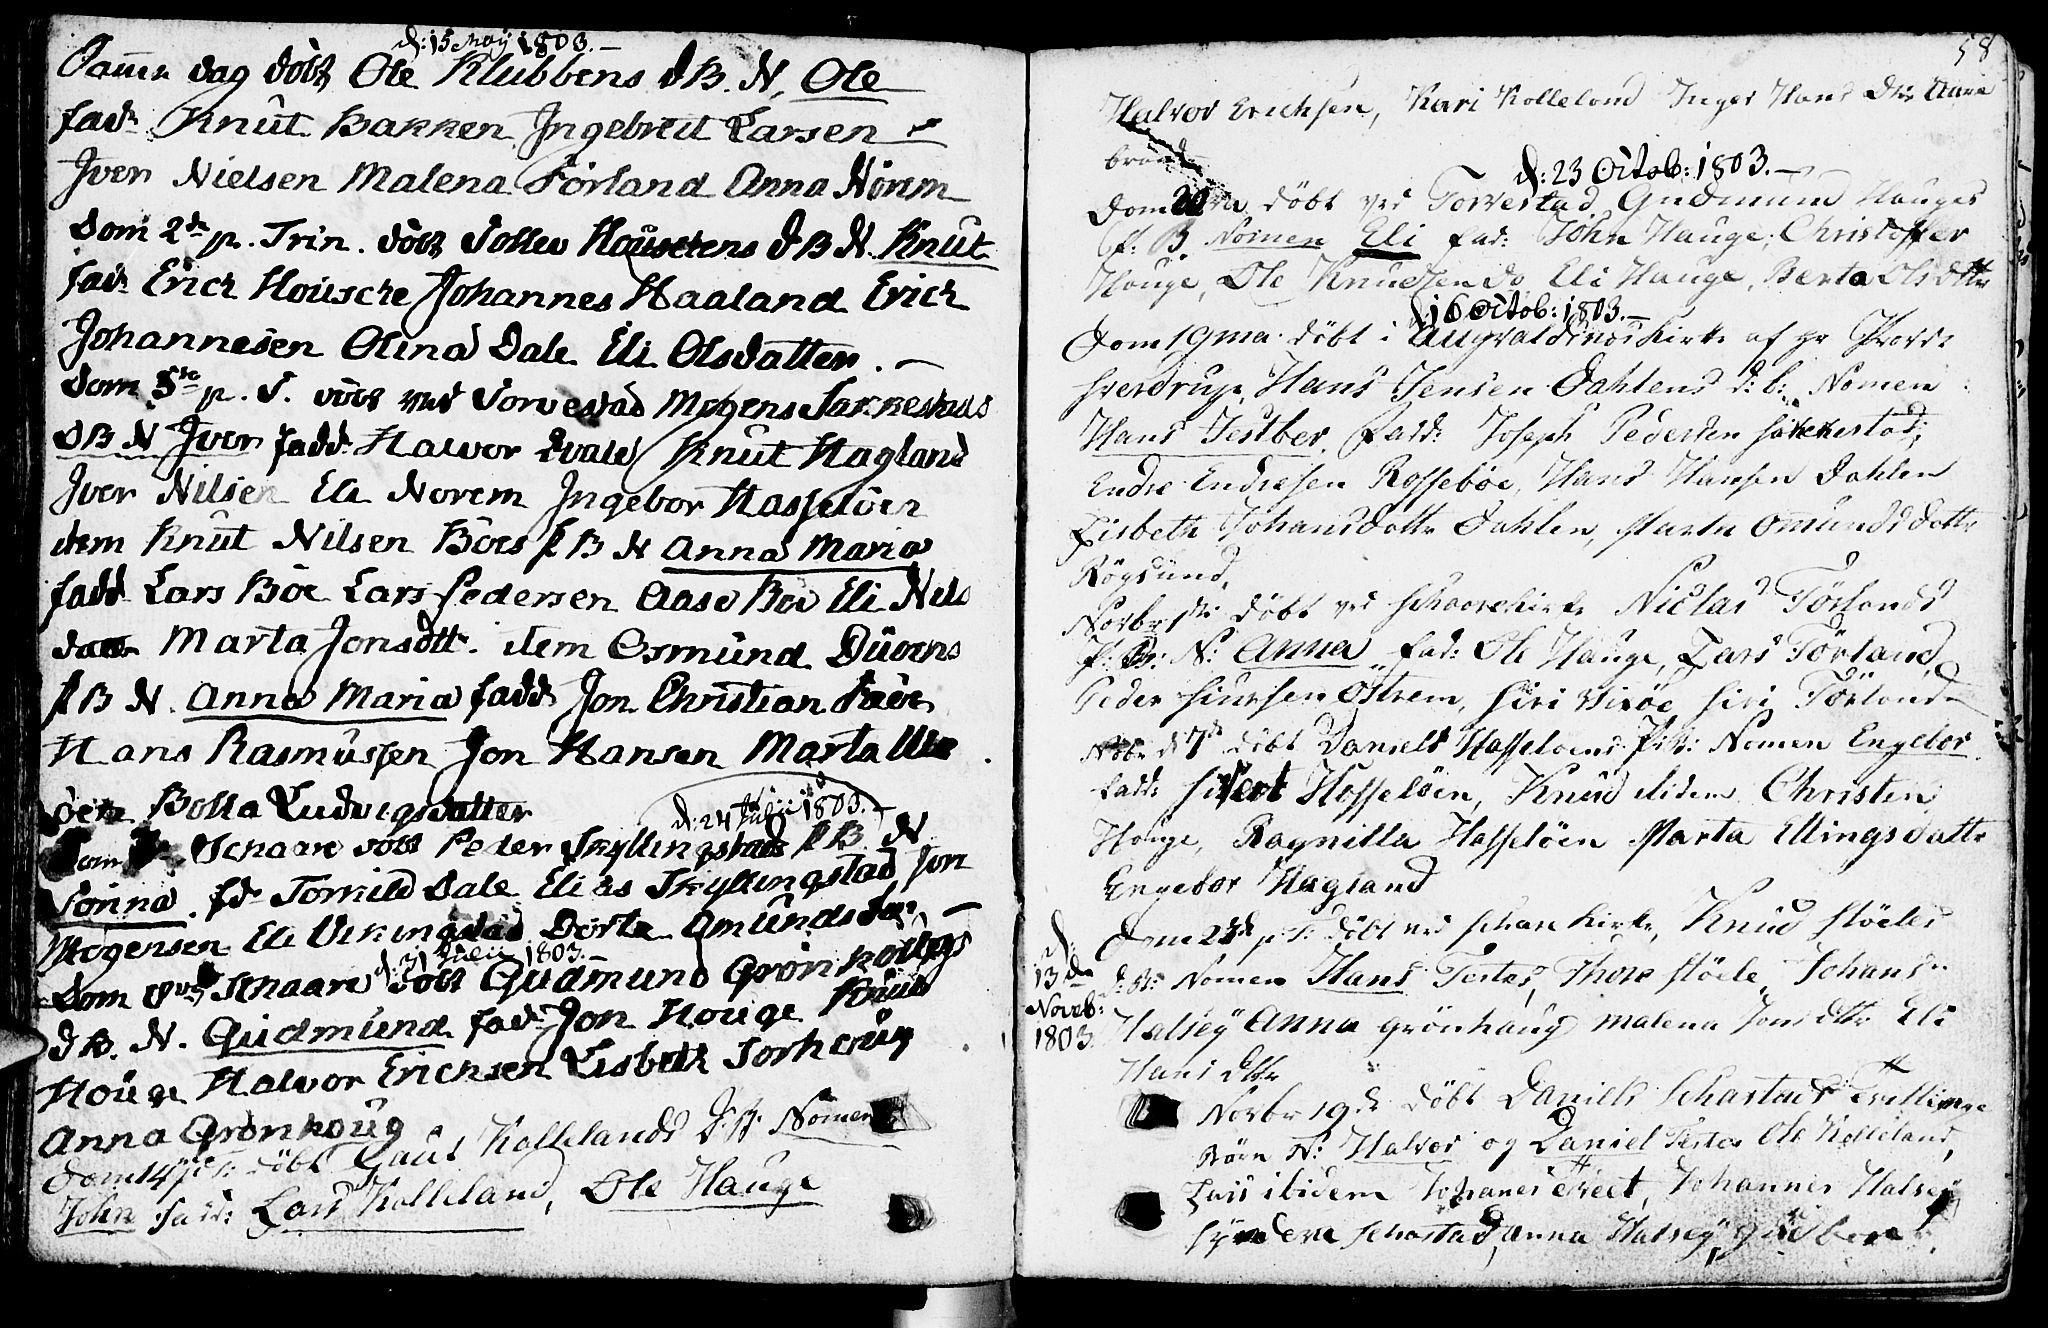 d: 15 May 1803. —
Samme dag döbt Ole Klubbens d B. N. Ole
fad. Knut Bakken Ingebret Larsen
Iver Nielsen Malena Förland Anna Norem
Dom 2de p. Trin. döbt Tollev Housckens d B N. Knut
fad. Erich Housche Johannes Haaland Erich
Johannesen Olena Dale Eli Olsdatter. —
Dom 5te p. T. döbt ved Torvestad Mogens Sakkestads
d B N Iver fadd. Halvor Qvale Knut Hagland
Iver Nilsen Eli Norem Ingebor Hasselöen
dem Knut Nilsen Böes p B N Anna Maria
fadd Lars Böe Lars Pedersen Aase Boe Eli Nils
datter Marta Jonsdtt. dem Osmund
p B N. Anna Maria fadd Jon Christian
Hans Rasmussen Jon Hansen Marta
Bolla Ludvigsdatter
d: 24 Julii 1803. —
Dom Schaare döbt Peder Skyllingstads p B. N
Sörina. fd. Tormild Dale Elias Skyllingstad Jon
Mogensen Eli Vikingstad Dorte Omundsdr. —
d: 31 Julii 1803. —
Dom Schaare döbt Gudmund Grönhougs
d B. N. Gudmund fad. Jon Houge Knud
Houge Halvor Erichsen Lisbeth Torhoug
Anna Grönhoug
Dom 14 p T: döbt Gaut Kollelands d. B. Nomen
John fadd: Lars Kolleland, Ole Hauge
58
Halvor Erichsen, Kari Kolleland Inger Hans Dtr Anne
d: 23 Octob: 1803. —
Dom 20ma döbt ved Torvestad Gudmund Hauges
p: B. Nomen Eli fad: John Hauge, Christoffer
Houge, Ole Knudsen do Eli Hauge, Berta Olsdttr
d 16 Octob: 1803. —
Dom 19ma döbt i Augvaldsnes Kirke af Hr Provst
Sverdrup, Hans Jensen Dahlens d: b: Nomen
Hans Jesber, fadd: Joseph Pedersen Sakkestad,
Endre Endresen Rosseböe, Hans Hansen Dahlen
Lisbeth Johansdottr Dahlen, Marta Omundsdottr
Rögsund,
Novbr döbt ved Schaarekirke Niclas Förlands
p: B: N: Anna fad: Ole Hauge, Lars Förland,
Peder Siursen Ostrem, Siri Visöe, Siri Förland
Nobr d 7de döbt Daniels Hasseloens p: b: Nomen Engebor
fadd: Sivert Hasselöen, Knud ibidem Christen
Houge, Ragnilla Hasselöen Marta Ellingsdattr
Engebor Hagland
d: 13de Novb: 1803
Dom 23de p T: döbt ved Schare Kirke, Knud Stöeles
d: B: Nomen Hans Testes, Thore Stöele, Johans
Halsey Anna Grönhaug Malena Jonsdttr Eli
Hans Dttr
Novbr 19de döbt Daniels Schastads Tvillinge
Börn N: Halvor og Daniel Testes Ole Kolleland,
Lars ibidem Johanes Tveet, Johannes Halsey
Syndeve Schastad, Anna Halsey,